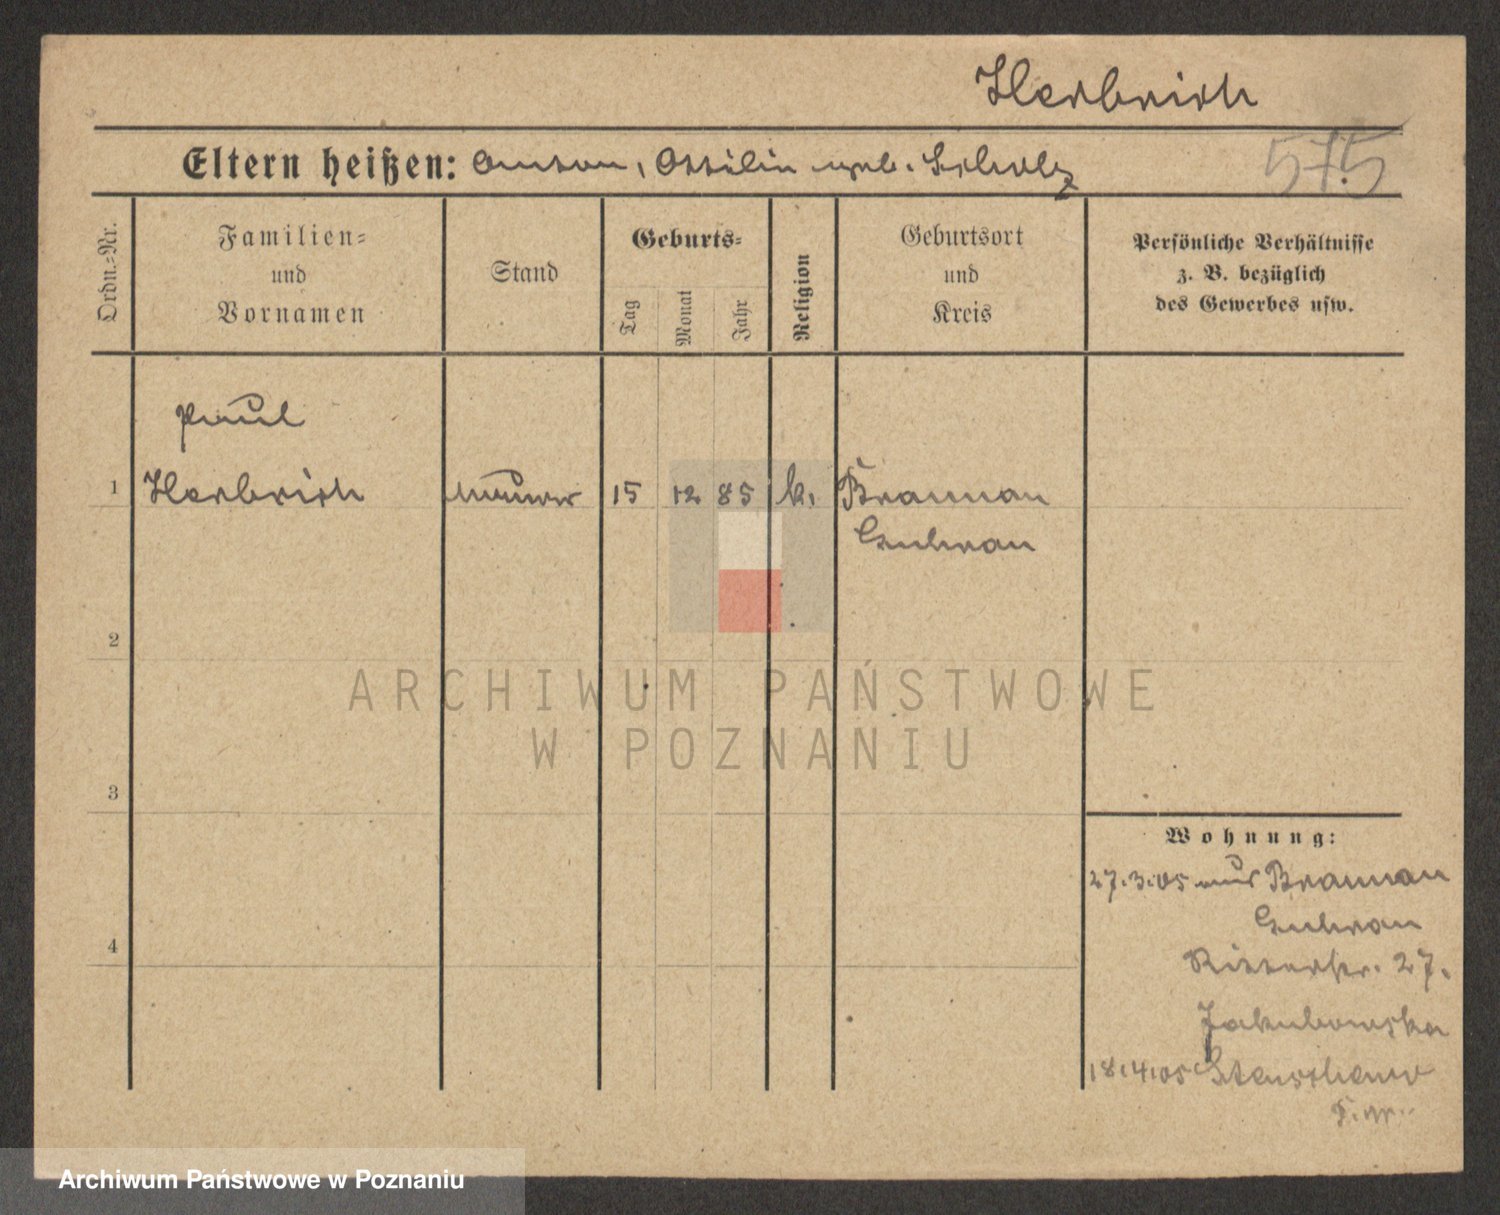 Herbrich
Eltern heißen: Anton, Ottilie geb. Scholz
575
Ordn.-Nr.
Familien-
und
Vornamen
Stand
Geburts-
Tag
Monat
Jahr
Religion
Geburtsort
und
Kreis
Persönliche Verhältnisse
z. B. bezüglich
des Gewerbes usw.
Paul
1 Herbrich Maurer 15 12 85 k. Braunau
Guhrau
2
3
4
ARCHIWUM PAŃSTWOWE
W POZNANIU
Wohnung:
27.3.05 aus Braunau
Guhrau
Ritterstr. 27.
Jakubowska
18.4.05
Archiwum Państwowe w Poznaniu